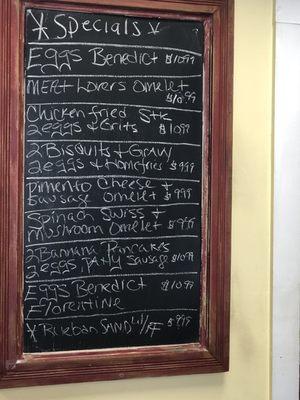 * Specials *
Eggs Benedict $1099
MEAT Lovers Omelet
$10.99
Chicken fried Stk
2 eggs & Grits $1099
2 Biscuits & Gravy
2 eggs & Homefries $999
Pimento Cheese &
Sausage Omelet $999
Spinach Swiss &
Mushroom Omelet $999
2 Bannana Pancakes
2 eggs, Patty Sausage $1099
Eggs Benedict $1099
Florentine
* Rueban SAND w/FF $999